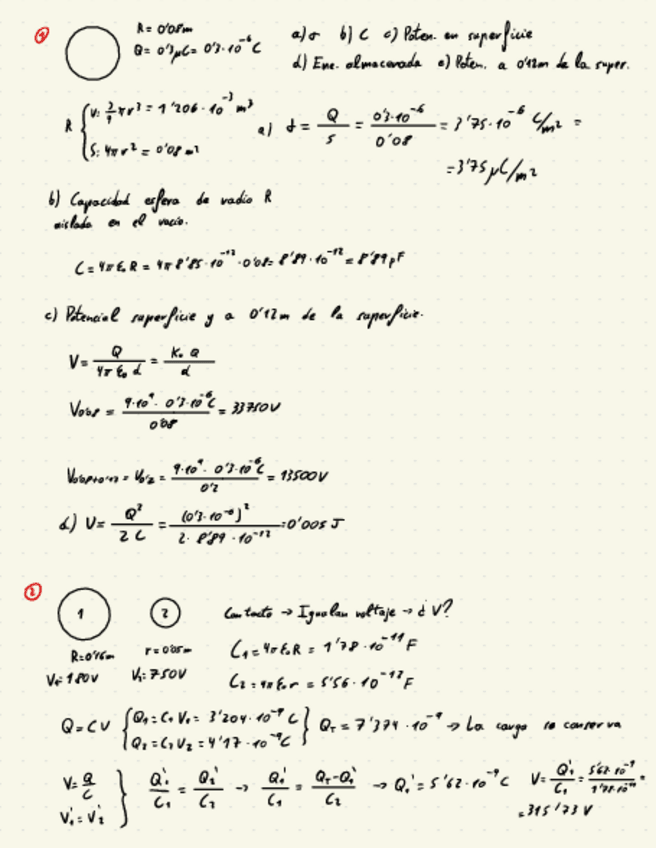 1 R = 0'08m
Q = 0'3μC = 0'3·10⁻⁶ C
a) σ b) C c) Poten. en superficie
d) Ene. almacenada e) Poten. a 0'12m de la super.
R { V: 3/4 πr³ = 1'206·10⁻³ m³
S: 4πr² = 0'08 m²
a) σ = Q/S = 0'3·10⁻⁶/0'08 = 3'75·10⁻⁶ C/m² =
= 3'75 μC/m²
b) Capacidad esfera de radio R
aislada en el vacío.
C = 4πε₀R = 4π 8'85·10⁻¹²·0'08 = 8'89·10⁻¹² = 8'89 pF
c) Potencial superficie y a 0'12m de la superficie.
V = Q/(4π ε₀ d) = K₀ Q/d
V₀'₀₈ = 9·10⁹·0'3·10⁻⁶C/0'08 = 33750V
V₀'₀₈₊₀'₁₂ = V₀'₂ = 9·10⁹·0'3·10⁻⁶C/0'2 = 13500V
d) U = Q²/2C = (0'3·10⁻⁶)²/(2·8'89·10⁻¹²) = 0'005 J
2 1 2 Contacto → Igualan voltaje → ¿V?
R=0'16m r=0'05m C₁ = 4πε₀R = 1'78·10⁻¹¹ F
V₁=180V V₂=750V C₂ = 4πε₀r = 5'56·10⁻¹² F
Q = CV { Q₁ = C₁V₁ = 3'204·10⁻⁹ C
Q₂ = C₂V₂ = 4'17·10⁻⁹ C } Q_T = 7'374·10⁻⁹ → La carga se conserva
V = Q/C
V₁' = V₂' } Q₁'/C₁ = Q₂'/C₂ → Q₁'/C₁ = (Q_T-Q₁')/C₂ → Q₁' = 5'62·10⁻⁹ C V = Q₁'/C₁ = 5'62·10⁻⁹/1'78·10⁻¹¹ =
= 315'73 V